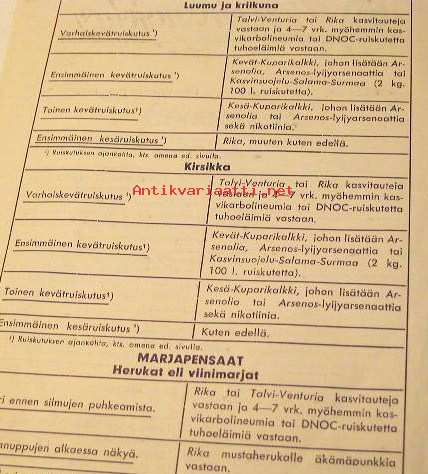 Luumu ja kriikuna
Varhaiskevätruiskutus ¹)
Talvi-Venturia tai Rika kasvitauteja
vastaan ja 4—7 vrk. myöhemmin kas-
vikarbolineumia tai DNOC-ruiskutetta
tuhoeläimiä vastaan.
Ensimmäinen kevätruiskutus ¹)
Kevät-Kuparikalkki, johon lisätään Ar-
senolia, Arsenos-lyijyarsenaattia tai
Kasvinsuojelu-Salama-Surmaa (2 kg.
100 l. ruiskutetta).
Toinen kevätruiskutus¹)
Kesä-Kuparikalkki, johon lisätään
Arsenolia tai Arsenos-lyijyarsenaattia
sekä nikotiinia.
Ensimmäinen kesäruiskutus ¹)
Rika, muuten kuten edellä.
¹) Ruiskutuksen ajankohta, kts. omena ed. sivulla.
Kirsikka
Varhaiskevätruiskutus ¹)
Talvi-Venturia tai Rika kasvitauteja
vastaan ja 4—7 vrk. myöhemmin kas-
vikarbolineumia tai DNOC-ruiskutetta
tuhoeläimiä vastaan.
Antikvariaatti.net
Ensimmäinen kevätruiskutus¹)
Kevät-Kuparikalkki, johon lisätään Ar-
senolia, Arsenos-lyijyarsenaattia tai
Kasvinsuojelu-Salama-Surmaa (2 kg.
100 l. ruiskutetta).
Toinen kevätruiskutus¹)
Kesä-Kuparikalkki, johon lisätään Ar-
senolia tai Arsenos-lyijyarsenaattia
sekä nikotiinia.
Ensimmäinen kesäruiskutus ¹)
Kuten edellä.
¹) Ruiskutuksen ajankohta, kts. omena ed. sivulla.
MARJAPENSAAT
Herukat eli viinimarjat
ri ennen silmujen puhkeamista.
Rika tai Talvi-Venturia kasvitauteja
vastaan ja 4—7 vrk. myöhemmin kas-
vikarbolineumia tai DNOC-ruiskutetta
tuhoeläimiä vastaan.
nuppujen alkaessa näkyä.
Rika mustaherukalle äkämäpunkkia
vastaan.